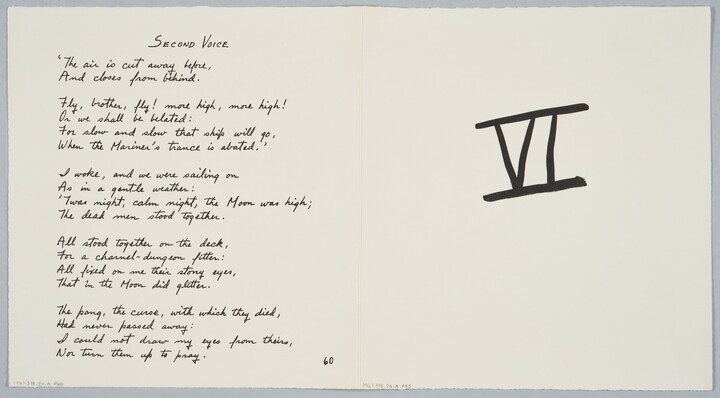 SECOND VOICE
'The air is cut away before,
And closes from behind.
Fly, brother, fly! more high, more high!
Or we shall be belated:
For slow and slow that ship will go,
When the Mariner's trance is abated.'
I woke, and we were sailing on
As in a gentle weather:
'Twas night, calm night, the Moon was high;
The dead men stood together.
All stood together on the deck,
For a charnel-dungeon fitter:
All fixed on me their stony eyes,
That in the Moon did glitter.
The pang, the curse, with which they died,
Had never passed away:
I could not draw my eyes from theirs,
Nor turn them up to pray.
60
VI